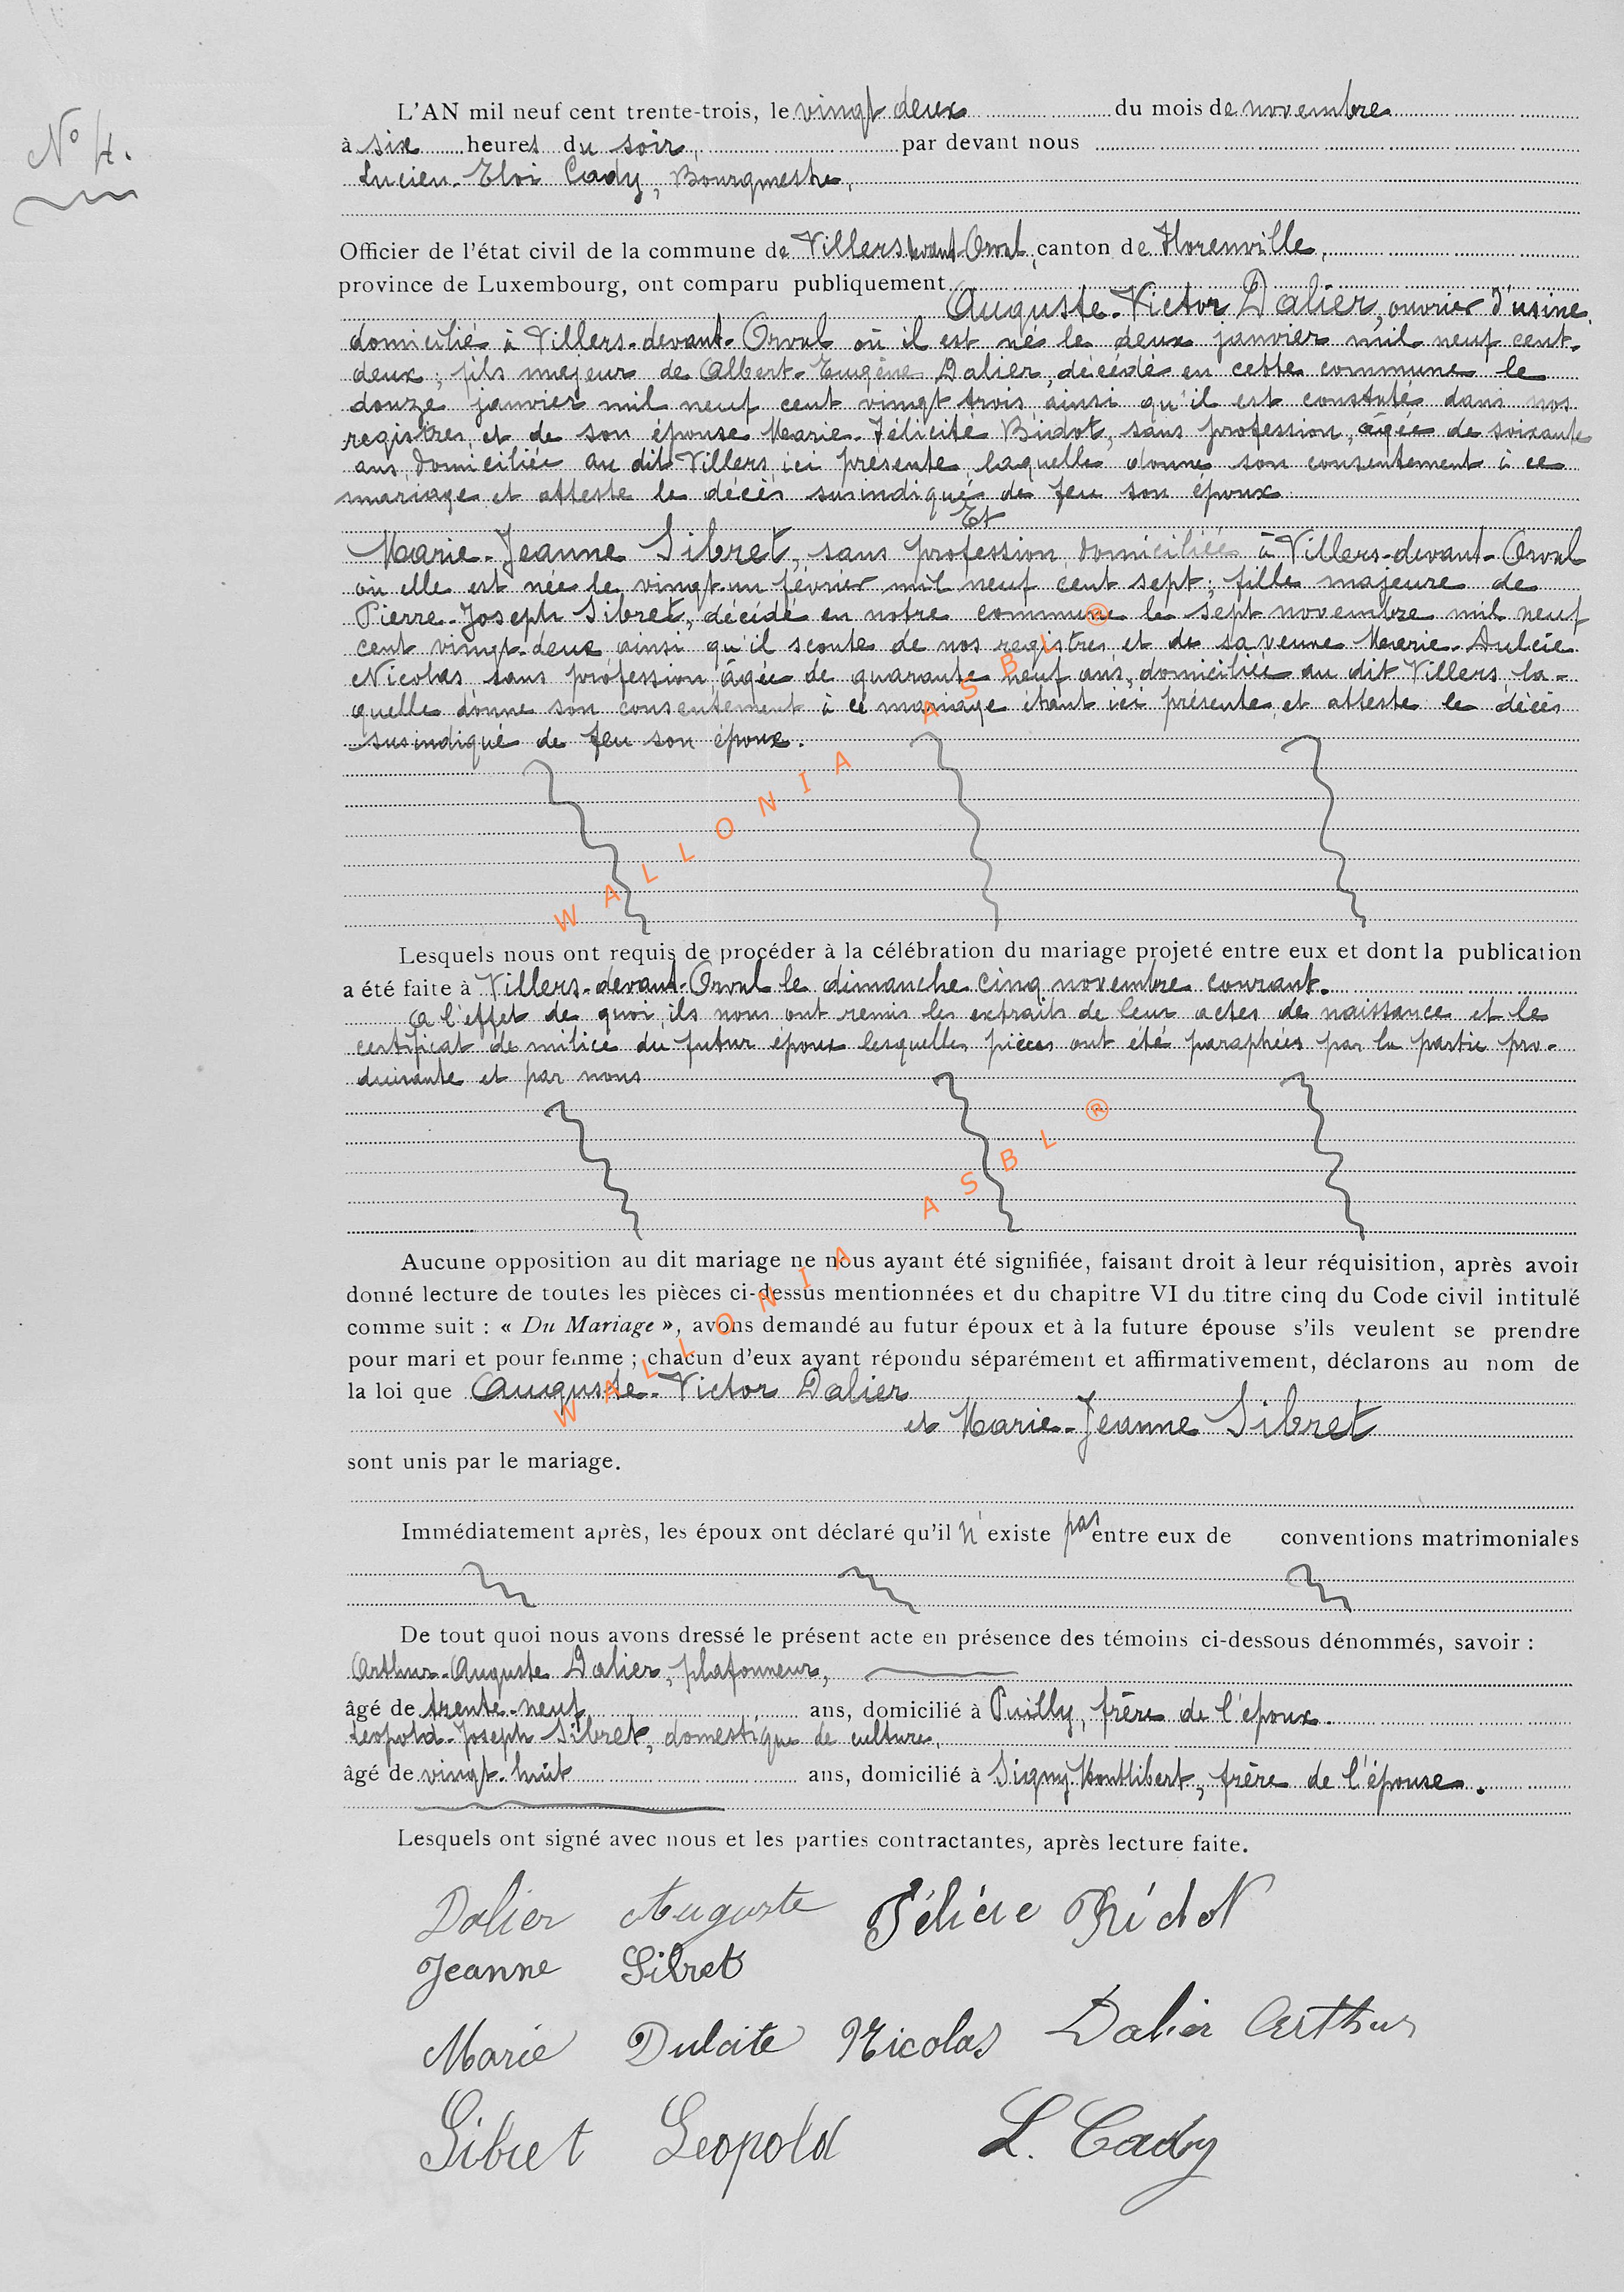 N° 4.
L'AN mil neuf cent trente-trois, le vingt deux du mois de novembre
à six heures du soir, par devant nous
Lucien-Eloi Cady, Bourgmestre,
Officier de l'état civil de la commune de Villers devant-Orval, canton de Florenville,
province de Luxembourg, ont comparu publiquement
Auguste-Victor Dalier, ouvrier d'usine,
domicilié à Villers-devant-Orval où il est né le deux janvier mil neuf cent-
deux; fils majeur de Albert-Eugène Dalier, décédé en cette commune le
douze janvier mil neuf cent vingt trois ainsi qu'il est constaté dans nos
registres, et de son épouse Marie-Félicité, sans profession, âgée de soixante
ans, domiciliée au dit Villers ici présente laquelle donne son consentement à ce
mariage et atteste le décès susindiqué de feu son époux
Et
Marie-Jeanne Sibret, sans profession, domiciliée à Villers-devant-Orval
où elle est née le vingt-un février mil neuf cent sept; fille majeure de
Pierre-Joseph Sibret, décédé en notre commune le sept novembre mil neuf
cent vingt-deux ainsi qu'il sconte de nos registres, et de sa veuve Marie-Dulcie
Nicolas sans profession, âgée de quarante neuf ans, domiciliée au dit Villers la-
quelle donne son consentement à ce mariage étant ici présente, et atteste le décès
susindiqué de feu son époux.
Lesquels nous ont requis de procéder à la célébration du mariage projeté entre eux et dont la publication
a été faite à Villers-devant-Orval le dimanche cinq novembre courant.
A l'effet de quoi, ils nous ont remis les extraits de leur actes de naissance et le
certificat de milice du futur époux lesquelles pièces ont été paraphées par la partie pro-
duisante et par nous
Aucune opposition au dit mariage ne nous ayant été signifiée, faisant droit à leur réquisition, après avoir
donné lecture de toutes les pièces ci-dessus mentionnées et du chapitre VI du titre cinq du Code civil intitulé
comme suit : « Du Mariage », avons demandé au futur époux et à la future épouse s'ils veulent se prendre
pour mari et pour femme ; chacun d'eux ayant répondu séparément et affirmativement, déclarons au nom de
la loi que Auguste-Victor Dalier
et Marie-Jeanne Sibret
sont unis par le mariage.
Immédiatement après, les époux ont déclaré qu'il n'existe pas entre eux de conventions matrimoniales
De tout quoi nous avons dressé le présent acte en présence des témoins ci-dessous dénommés, savoir :
Arthur-Auguste Dalier, plafonneur,
âgé de trente-neuf ans, domicilié à Puilly, frère de l'époux.
Léopold-Joseph Sibret, domestique de culture,
âgé de vingt-huit ans, domicilié à Signy Montlibert, frère de l'épouse.
Lesquels ont signé avec nous et les parties contractantes, après lecture faite.
Dalier Auguste
Jeanne Sibret
Marie Dulcite Nicolas Dalier Arthur
Sibret Leopold L. Cady
WALLONIA ASBL ®
WALLONIA ASBL ®